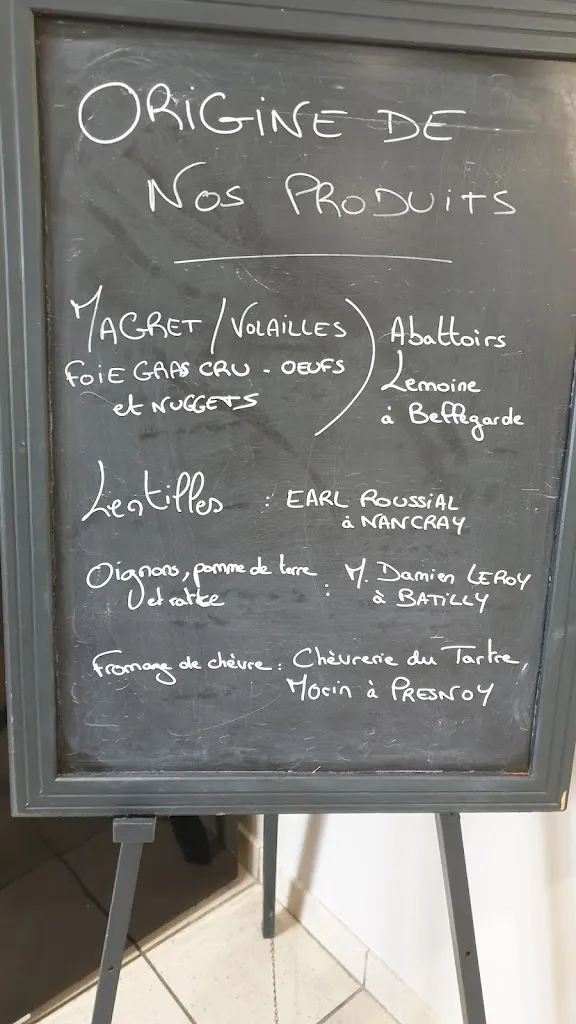 ORIGINE DE
NOS PRODUITS
MAGRET / VOLAILLES
FOIE GRAS CRU - OEUFS
et NUGGETS
Abattoirs
Lemoine
à Bellegarde
Lentilles : EARL ROUSSIAL
à NANCRAY
Oignons, pomme de terre : M. Damien LEROY
et ratte à BATILLY
Fromage de chèvre : Chèvrerie du Tartre,
à PRESNOY